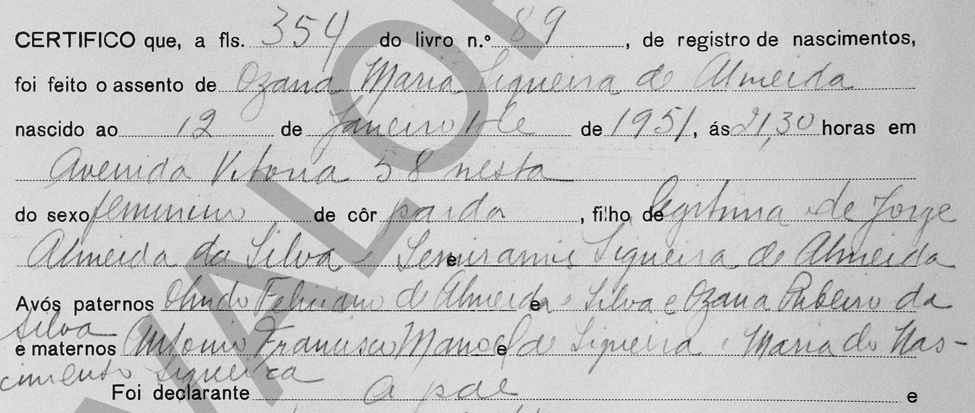 CERTIFICO que, a fls. 354 do livro n.º 89, de registro de nascimentos,
foi feito o assento de Ozana Maria Siqueira de Almeida
nascido ao 12 de Janeiro de de 1951, ás 21,30 horas em
Avenida Vitoria 58 nesta
do sexo feminino de côr parda, filho de legitima de Jorge
Almeida da Silva e Semiramis Siqueira de Almeida
Avós paternos Olindo Feliciano de Almeida e Silva e Ozana Ribeiro da
Silva
e maternos Antonio Francisco Manoel e de Siqueira e Maria do Nas-
cimento Siqueira
Foi declarante o pae e
VALOR